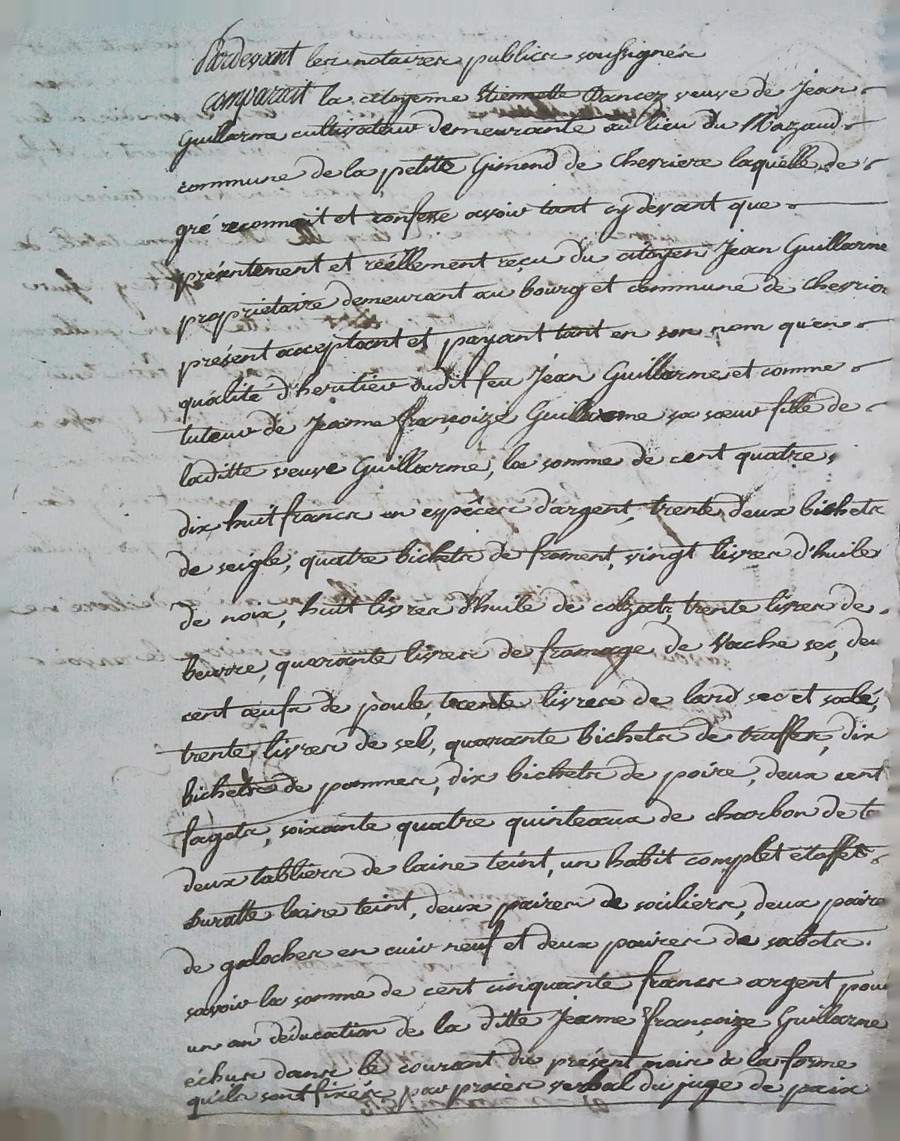 Pardevant les notaires publics soussignés
comparait la citoyenne Etiennette Dancer veuve de Jean
Guillarme cultivateur demeurante au lieu du Mazaud
commune de la petite Gimond de chevriere laquelle de
gré reconnoit et confesse avoir tant cydevant que
présentement et réellement reçu du citoyen Jean Guillarme
propriétaire demeurant au bourg et commune de chevrier
présent acceptant et payant tant en son nom qu'en
qualité d'heritier dudit feu Jean Guillarme et comme
tuteur de Jeanne françoize Guillarme sa sœur fille de
laditte veuve Guillarme, la somme de cent quatre
dix huit francs en espèces d'argent, trente deux bichets
de seigle, quatre bichets de froment, vingt livres d'huile
de noix, huit livres d'huile de colzat, trente livres de
beurre, quarante livres de fromage de vache sec, deu
cent œufs de poule, trente livres de lard sec et salé,
trente livres de sel, quarante bichets de truffes, dix
bichets de pommes, dix bichets de poire, deux cent
fagots, soixante quatre quinteaux de charbon de te
deux tabliers de laine teint, un habit complet etoffe
buratte laine teint, deux paires de souliers, deux paire
de galoches en cuir neuf et deux paires de sabots.
savoir la somme de cent cinquante francs argent pour
un an déducation de la ditte Jeanne françoize Guillarme
échus dans le courant du présent mois à la forme
qu'ils sont fixés par procès verbal du juge de paix